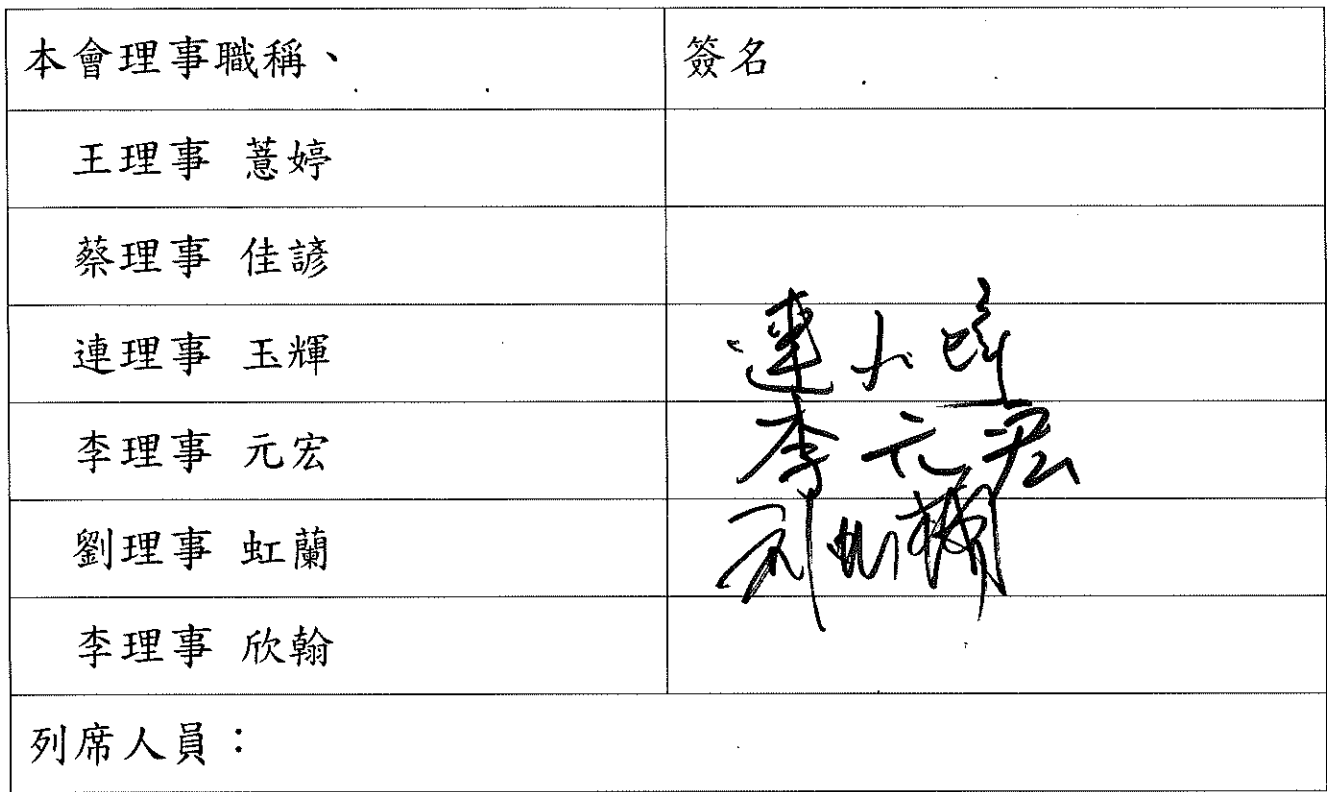 本會理事職稱、 簽名
王理事 薏婷
蔡理事 佳諺
連理事 玉輝 連
李理事 元宏 李元宏
劉理事 虹蘭 刘
李理事 欣翰
列席人員：